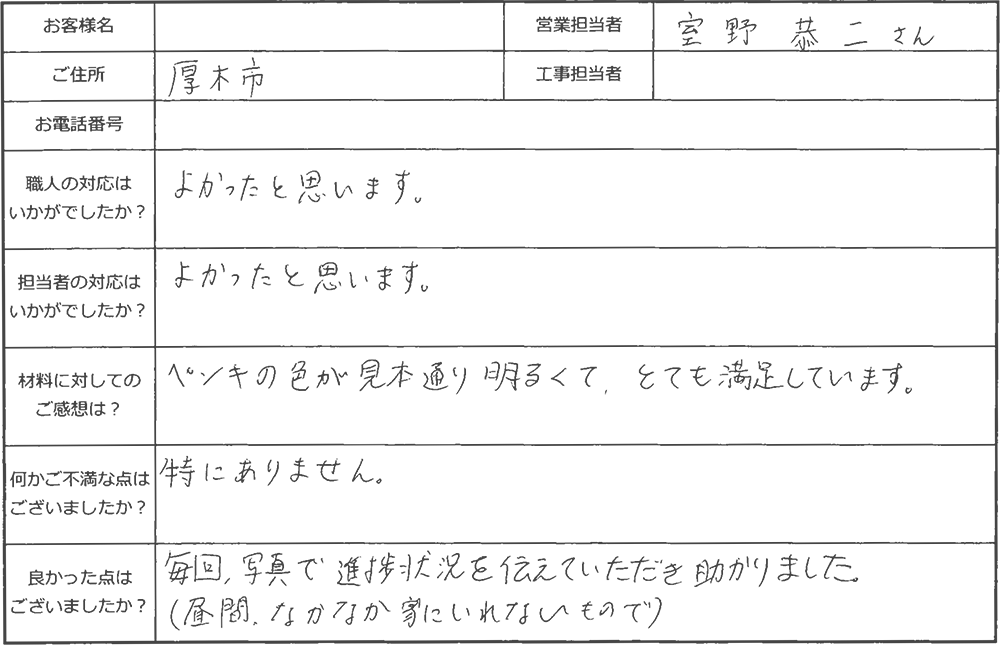 お客様名
営業担当者 室野 恭二さん
ご住所 厚木市
工事担当者
お電話番号
職人の対応は
いかがでしたか？
よかったと思います。
担当者の対応は
いかがでしたか？
よかったと思います。
材料に対しての
ご感想は？
ペンキの色が見本通り明るくて、とても満足しています。
何かご不満な点は
ございましたか？
特にありません。
良かった点は
ございましたか？
毎回、写真で進捗状況を伝えていただき助かりました。
(昼間、なかなか家にいれないもので)